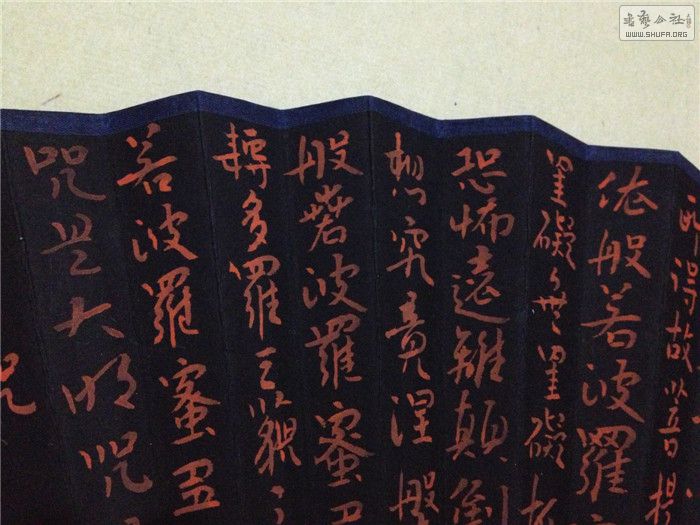 所得故菩提
依般若波羅
罣礙無罣礙故
恐怖遠離顛倒
想究竟涅槃
般若波羅蜜多
耨多羅三藐三
若波羅蜜多
咒是大明咒
咒
書藝公社
WWW.SHUFA.ORG